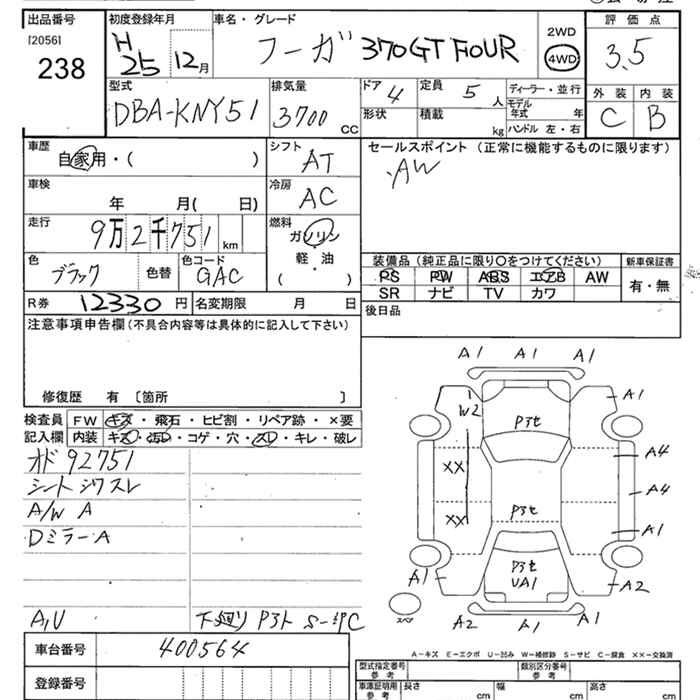 出品番号
[2056]
238
初度登録年月
H
25
12月
車名・グレード
フーガ 370GT FOUR
2WD
4WD
評価点
3.5
外装 内装
C B
型式
DBA-KNY51
排気量
3700 CC
ドア
4
形状
定員
5 人
積載
kg
ディーラー・並行
モデル年式 年
ハンドル 左・右
車歴
自家用・( )
シフト
AT
車検
年 月( 日)
冷房
AC
走行
9万2千751 km
燃料
ガソリン
軽・油
( )
色
ブラック
色替
色コード
GAC
R券 12330 円
名変期限 月 日
セールスポイント (正常に機能するものに限ります)
AW
装備品 (純正品に限り○をつけてください)
新車保証書
PS PW ABS エアB AW
SR ナビ TV カワ
有・無
後日品
注意事項申告欄(不具合内容等は具体的に記入して下さい)
修復歴 有 〔箇所 〕
検査員記入欄
FW キズ・飛石・ヒビ割・リペア跡・×要
内装 キズ・汚レ・コゲ・穴・スレ・キレ・破レ
オド 92751
シート シワ スレ
A/W A
Dミラー A
A,U
下廻り P3ト S-ﾀPC
A1 A1 A1
W2
A1
P3t
XX
A4
A4
XX
P3t
A1
A1
P3t
UA1
A2
スペア
A2 A1 A1
A-キズ E-エクボ U-凹み W-補修跡 S-サビ C-腐食 XX-交換済
車台番号
400564
登録番号
型式指定番号
類別区分番号
車庫証明用参考
長さ cm
幅 cm
高さ cm